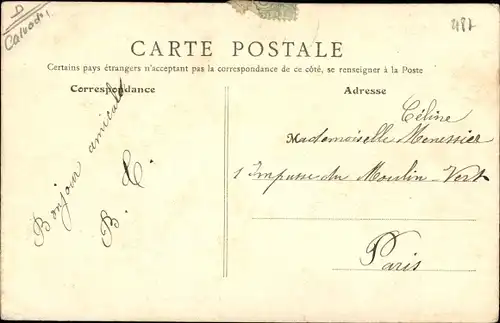 Calvados
487
CARTE POSTALE
Certains pays étrangers n'acceptant pas la correspondance de ce côté, se renseigner à la Poste
Correspondance
Adresse
Bonjour amical
B. C.
Céline
Mademoiselle Menessier
1 Impasse du Moulin-Vert
Paris